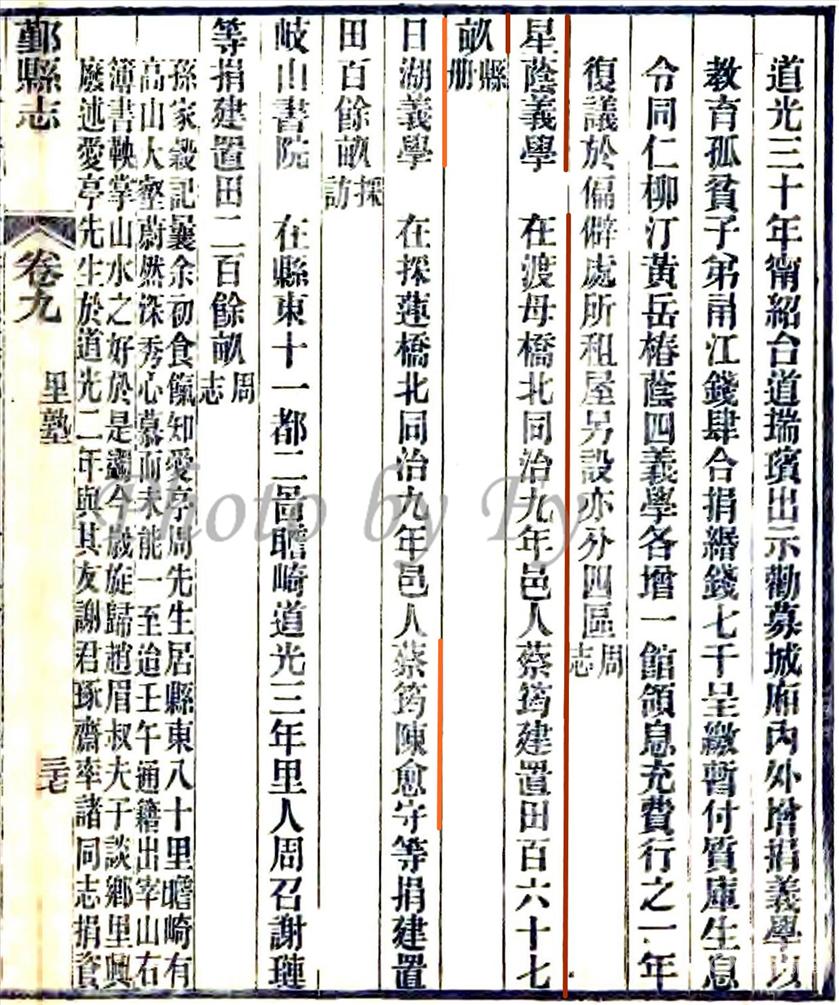 道光三十年甯紹台道瑞璸出示勸募城廂內外增捐義學以
教育孤貧子弟甬江錢肆合捐緡錢七千呈繳暫付質庫生息
令同仁柳汀黃岳椿蔭四義學各增一館領息充費行之一年
復議於偏僻處所租屋另設亦分四區周志
星蔭義學 在渡母橋北同治九年邑人蔡筠建置田百六十七
畝縣册
日湖義學 在採蓮橋北同治九年邑人蔡筠陳愈守等捐建置
田百餘畝採訪
岐山書院 在縣東十一都二啚瞻崎道光三年里人周召謝璉
等捐建置田二百餘畝周志
孫家穀記曩余初食餼知愛亭周先生居縣東八十里瞻崎有
高山大壑蔚然深秀心慕而未能一至迨壬午通籍出宰山右
簿書鞅掌山水之好於是蠲今歲旋歸趙眉叔大于談鄉里興
廢述愛亭先生於道光二年與其友謝君琢齋率諸同志捐資
鄞縣志
卷九
里塾
三七
Photo by Fy